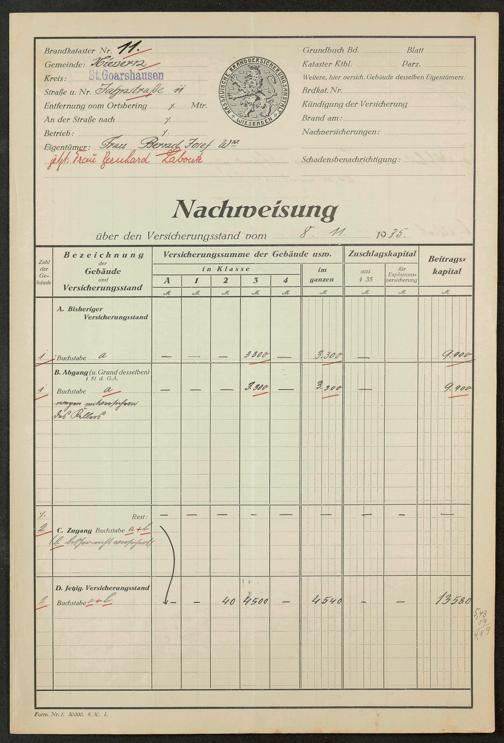 Brandkataster Nr. 11.
Gemeinde: Nievern
Kreis: St.Goarshausen
Straße u. Nr. 11
Entfernung vom Ortsbering ⁒ Mtr.
An der Straße nach ⁒
Betrieb: ⁒
Eigentümer: Frau Josef Wwe
jetzt Frau
NASSAUISCHE BRANDVERSICHERUNGSANSTALT WIESBADEN
Grundbuch Bd. Blatt
Kataster Ktbl. Parz.
Weitere, hier versich. Gebäude desselben Eigentümers:
Brdkat. Nr.
Kündigung der Versicherung
Brand am:
Nachversicherungen:
Schadensbenachrichtigung:
Nachweisung
über den Versicherungsstand vom 8. 11. 1935.
Zahl der Gebäude
Bezeichnung der Gebäude und Versicherungsstand
Versicherungssumme der Gebäude usw.
in Klasse
A 1 2 3 4
im ganzen
Zuschlagskapital
aus § 35
für Explosionsversicherung
Beitragskapital
ℳ ℳ ℳ ℳ ℳ ℳ ℳ ℳ ℳ
A. Bisheriger Versicherungsstand
1 Buchstabe a — — — 3300 — 3.300 — 9.900
B. Abgang (u. Grund desselben)
§ 51 d. G.A.
1 Buchstabe a — — — 3.300 — 3.300 — 9.900
⁒ Rest: — — — — — — — — —
2 C. Zugang Buchstabe a+b
D. Jetzig. Versicherungsstand
2 Buchstabe a+b — — 40 4500 — 4540 — — 13580
Form. Nr. 1.